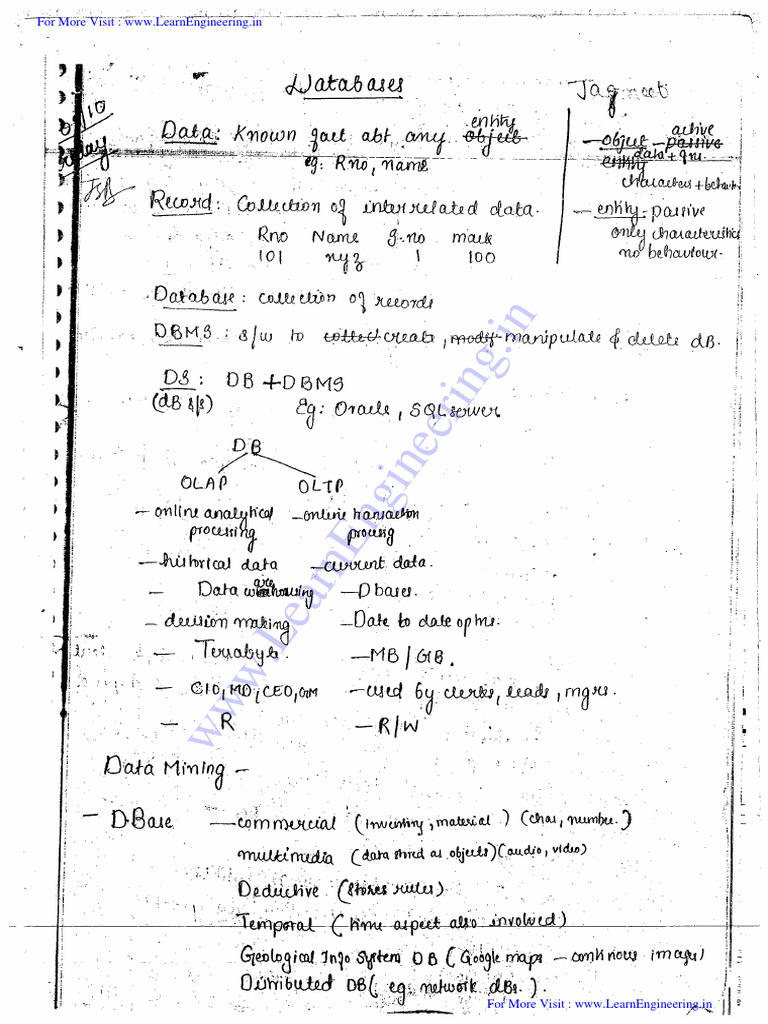 For More Visit : www.LearnEngineering.in
Databases
Jagneet
/10
Data: Known fact abt any object entity
eg: Rno, name
Record: Collection of interrelated data.
Rno Name g.no mark
101 xyz 1 100
- object - passive active
entity data + fns.
characters + behav.
- entity - passive
only characteristics
no behaviour.
Database: collection of records
DBMS: s/w to collect create, modif manipulate & delete dB.
DS: DB + DBMS
(dB s/s) Eg: Oracle, SQL server.
DB
OLAP OLTP
- online analytical - online transaction
processing procesig
- historical data - current data.
- Data warehousing - Dbases.
- decision making - Date to date optns.
- Terrabyte - MB / GB.
- CIO, MD, CEO, GM - used by clerks, leads, mgrs.
- R - R/W
Data Mining -
- DBase - commercial (inventory, material) (char, number.)
multimedia (data stored as objects) (audio, video)
Deductive (stores rules)
Temporal (time aspect also involved)
Geological Info System DB (Google maps - continous images)
Distributed DB (eg: network dBs.).
For More Visit : www.LearnEngineering.in
www.LearnEngineering.in